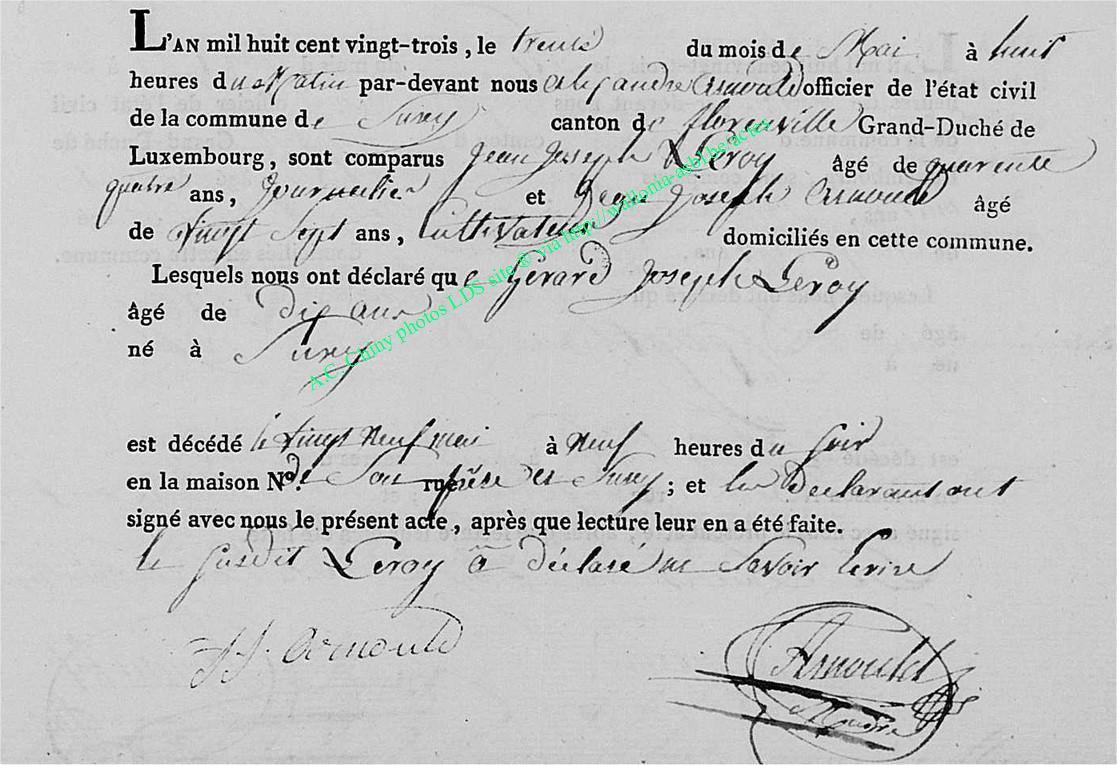 L'AN mil huit cent vingt-trois, le trente du mois de Mai à huit
heures du Matin par-devant nous alexandre arnould officier de l'état civil
de la commune de Suxy canton de florenville Grand-Duché de
Luxembourg, sont comparus Jean Joseph Leroy âgé de quarente
quatre ans, Journalier et Jean Joseph Arnould âgé
de vingt Sept ans, Cultivateur domiciliés en cette commune.
Lesquels nous ont déclaré que Gérard Joseph Leroy
âgé de dix ans
né à Suxy
est décédé le vingt neuf mai à neuf heures du Soir
en la maison N° de Son père à Suxy ; et les Déclarant ont
signé avec nous le présent acte, après que lecture leur en a été faite.
le Susdit Leroy a déclaré ne Savoir Ecrire
J J. Arnould
Arnould
A.C. Chiny photos LDS site © via http://wallonia-asbl.be/actes